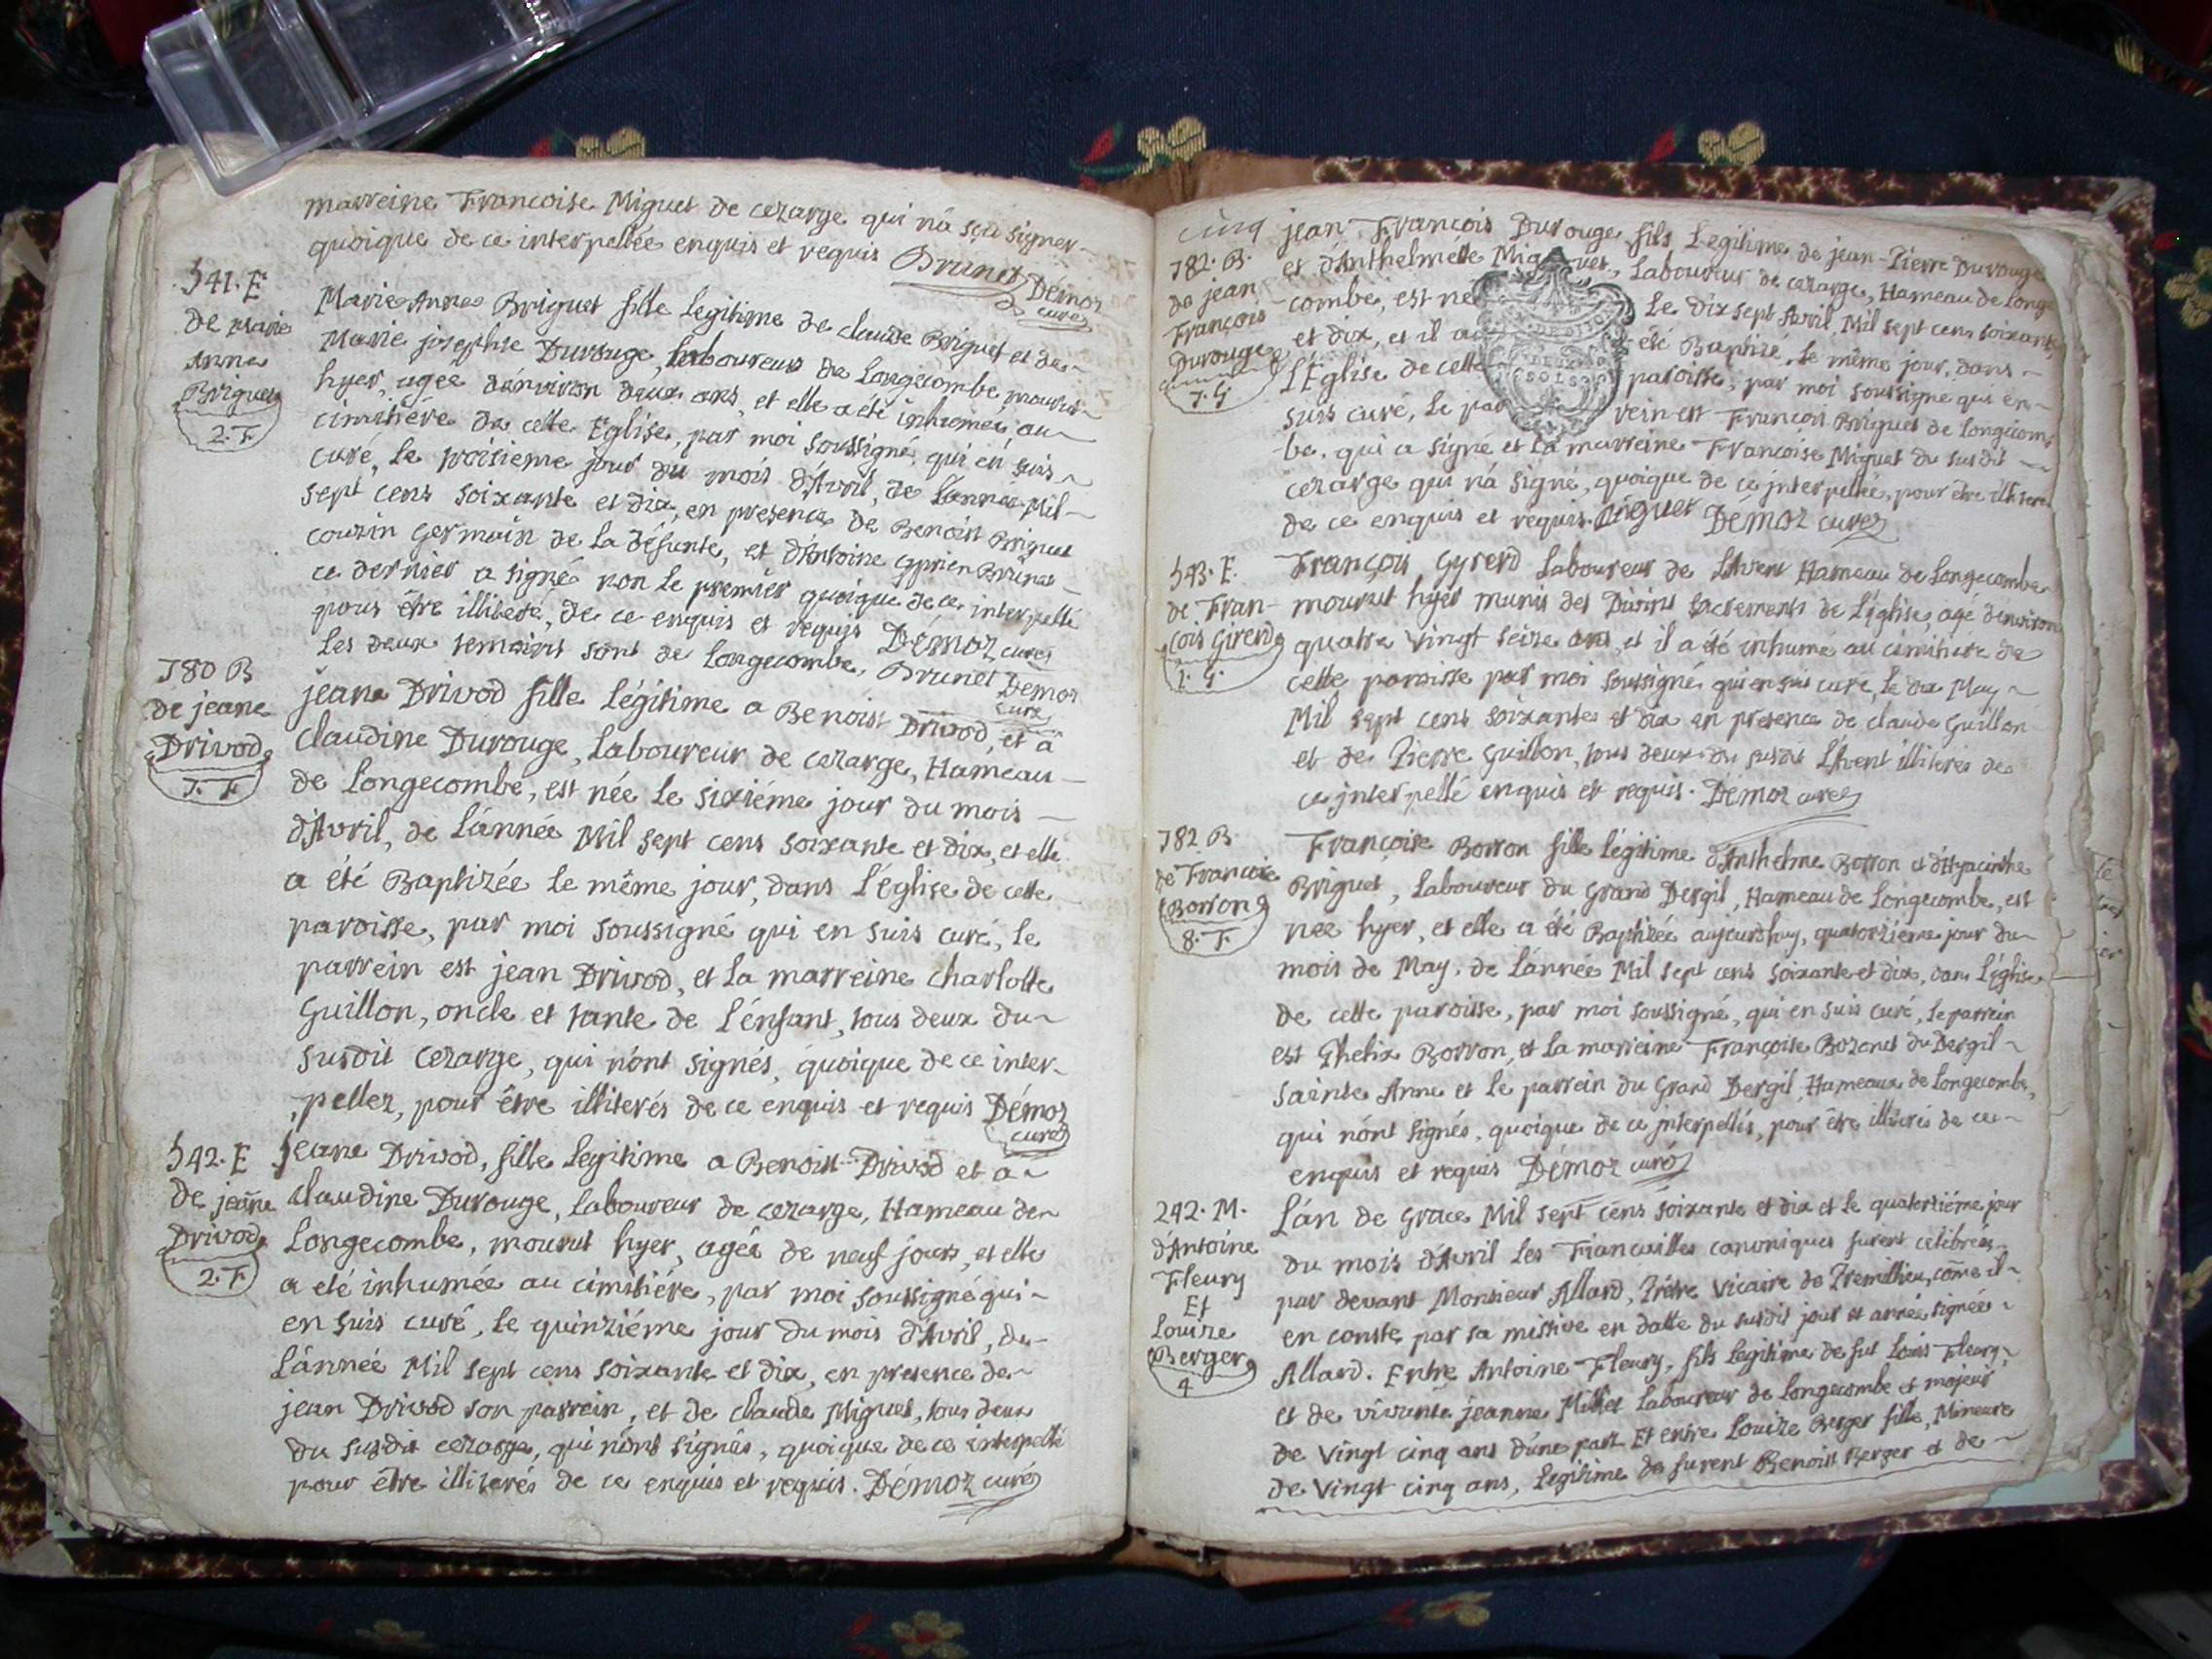 marreine Francoise Miguet de cezarge qui n'a sçu signer
quoique de ce interpellée enquis et requis Brunet Démoz
curé
541. E
de Marie
Anne
Briguet
2. F
Marie Anne Briguet fille Legitime de claude Briguet et de
Marie josephte Durouge, Laboureur de Longecombe mourut
hyer, agée d'environ deux ans, et elle a été inhumée, au
cimitiére de cette Eglise, par moi soussigné, qui en suis
curé, Le troisieme jour du mois d'Avril, de L'année Mil
sept cens soixante et dix, en presence de Benoist Briguet
couzin germain de La défunte, et d'Antoine cyprien Brunet
ce dernier a signé non Le premier quoique de ce interpellé
pour être illiteré, de ce enquis et requis Démoz curé
Les deux temoins sont de Longecombe, Brunet Démoz
curé
780 B
de jeane
Drivod
7. F
jeane Drivod fille Légitime a Benoist Drivod, et à
claudine Durouge, Laboureur de cezarge, Hameau
de Longecombe, est née Le sixiéme jour du mois
d'Avril, de L'année Mil sept cens soixante et dix, et elle
a été Baptizée Le même jour, dans L'église de cette
paroisse, par moi soussigné qui en suis curé, Le
parrein est jean Drivod, et La marreine charlotte
Guillon, oncle et tante de L'énfant, tous deux du
susdit cezarge, qui n'ont signés, quoique de ce inter-
pellez, pour être illiterés de ce enquis et requis Démoz
curé
542. E
de jeane
Drivod
2. F
Jeane Drivod, fille Legitime a Benoist Drivod et a
claudine Durouge, Laboureur de cezarge, Hameau de
Longecombe, mourut hyer, agée de neuf jours, et elle
a eté inhumée au cimitiére, par moi soussigné qui
en suis curé, Le quinziéme jour du mois d'Avril, de
L'ánnée Mil sept cens soixante et dix, en presence de
jean Drivod son parrein, et de claude Miguet, tous deux
du susdit cezarge, qui n'ont signés, quoique de ce interpellé
pour être illiterés de ce enquis et requis. Démoz curé
cinq
782. B.
de jean
François
Durouge
7. G
jean François Durouge fils Legitime de jean-Pierre Durouge
et d'Anthelmette Miguet, Laboureur de cezarge, Hameau de Longe
combe, est né Le dix sept Avril, Mil sept cens soixante
et dix, et il a été Baptizé, Le même jour, dans
L'Église de cette paroisse, par moi soussigné qui en
suis curé, Le parrein est François Briguet de Longecom
be, qui a signé et La marreine Francoise Miguet du susdit
cezarge qui n'a signé, quoique de ce interpellée, pour être illiteré
de ce enquis et requis. Briguet Démoz curé
543. E.
de Fran-
cois Girend
1. G.
François Gyrerd Laboureur de Lhvent Hameau de Longecombe
mourut hyer munis des Divins sacrements de L'église, agé denviron
quatre Vingt seize ans, et il a été inhumé au cimitiére de
cette paroisse par moi soussigné qui en suis curé, Le dix May
Mil sept cens soixante et dix en presence de claude Guillon
et de Pierre Guillon, tous deux du susdit Lhvent illiterés de
ce jnterpellé enquis et requis. Démoz curé
782 B
de Francoise
Borron
8. F.
Françoise Borron fille Légitime d'Anthelme Borron et d'Hyacinthe
Briguet, Laboureur du Grand Dergil, Hameau de Longecombe, est
née hyer, et elle a été Baptizée aujourdhuy, quatorziéme jour du
mois de May, de L'année Mil sept cens soixante et dix, dans L'église
de cette paroisse, par moi soussigné, qui en suis curé, Le parrein
est Phelix Borron, et La marreine Françoise Bozonet du Dergil
sainte Anne et Le parrein du Grand Dergil, Hameaux de Longecombe,
qui n'ont signés, quoique de ce jnterpellés, pour être illiterés de ce
enquis et requis Démoz curé
242. M.
d'Antoine
Fleury
Et
Louize
Berger
4
L'án de Grace Mil sept cens soixante et dix et Le quatorziéme jour
du mois d'Avril Les Fiancailles canoniques furent célébrées
par devant Monsieur Allard, Prêtre Vicaire de Premillieu, côme il
en conste par sa missive en datte du susdit jour et année signée
Allard. Entre Antoine Fleury, fils Legitime de fut Loüis Fleury,
et de vivante jeanne Millet Laboureur de Longecombe et majeur
de Vingt cinq ans d'une part Et entre Louize Berger fille, Mineure
de Vingt cinq ans, Legitime de furent Benoist Berger et de